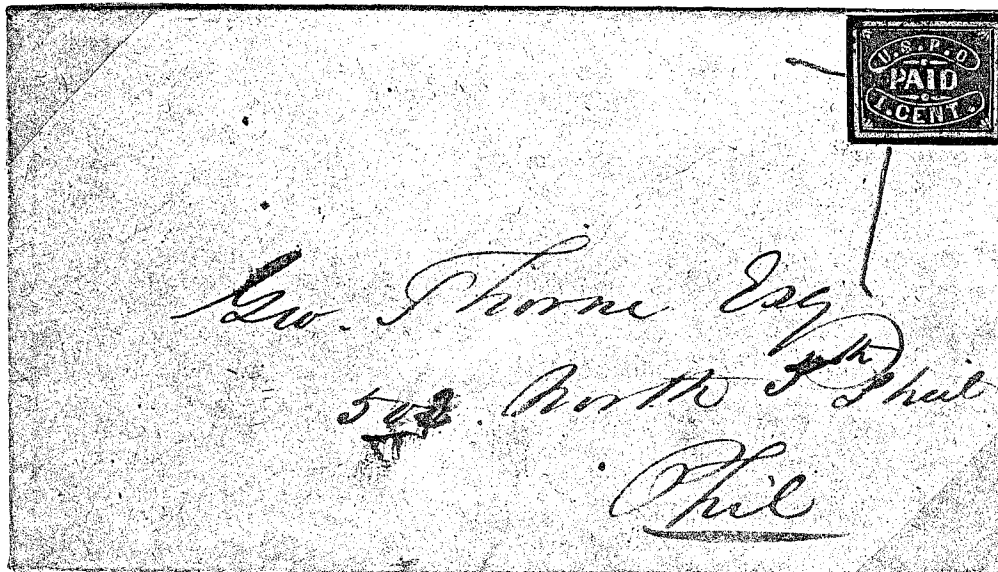 U.S.P.O
PAID
1. CENT.
Geo. Thorne Esq
502 North 5th
Phil